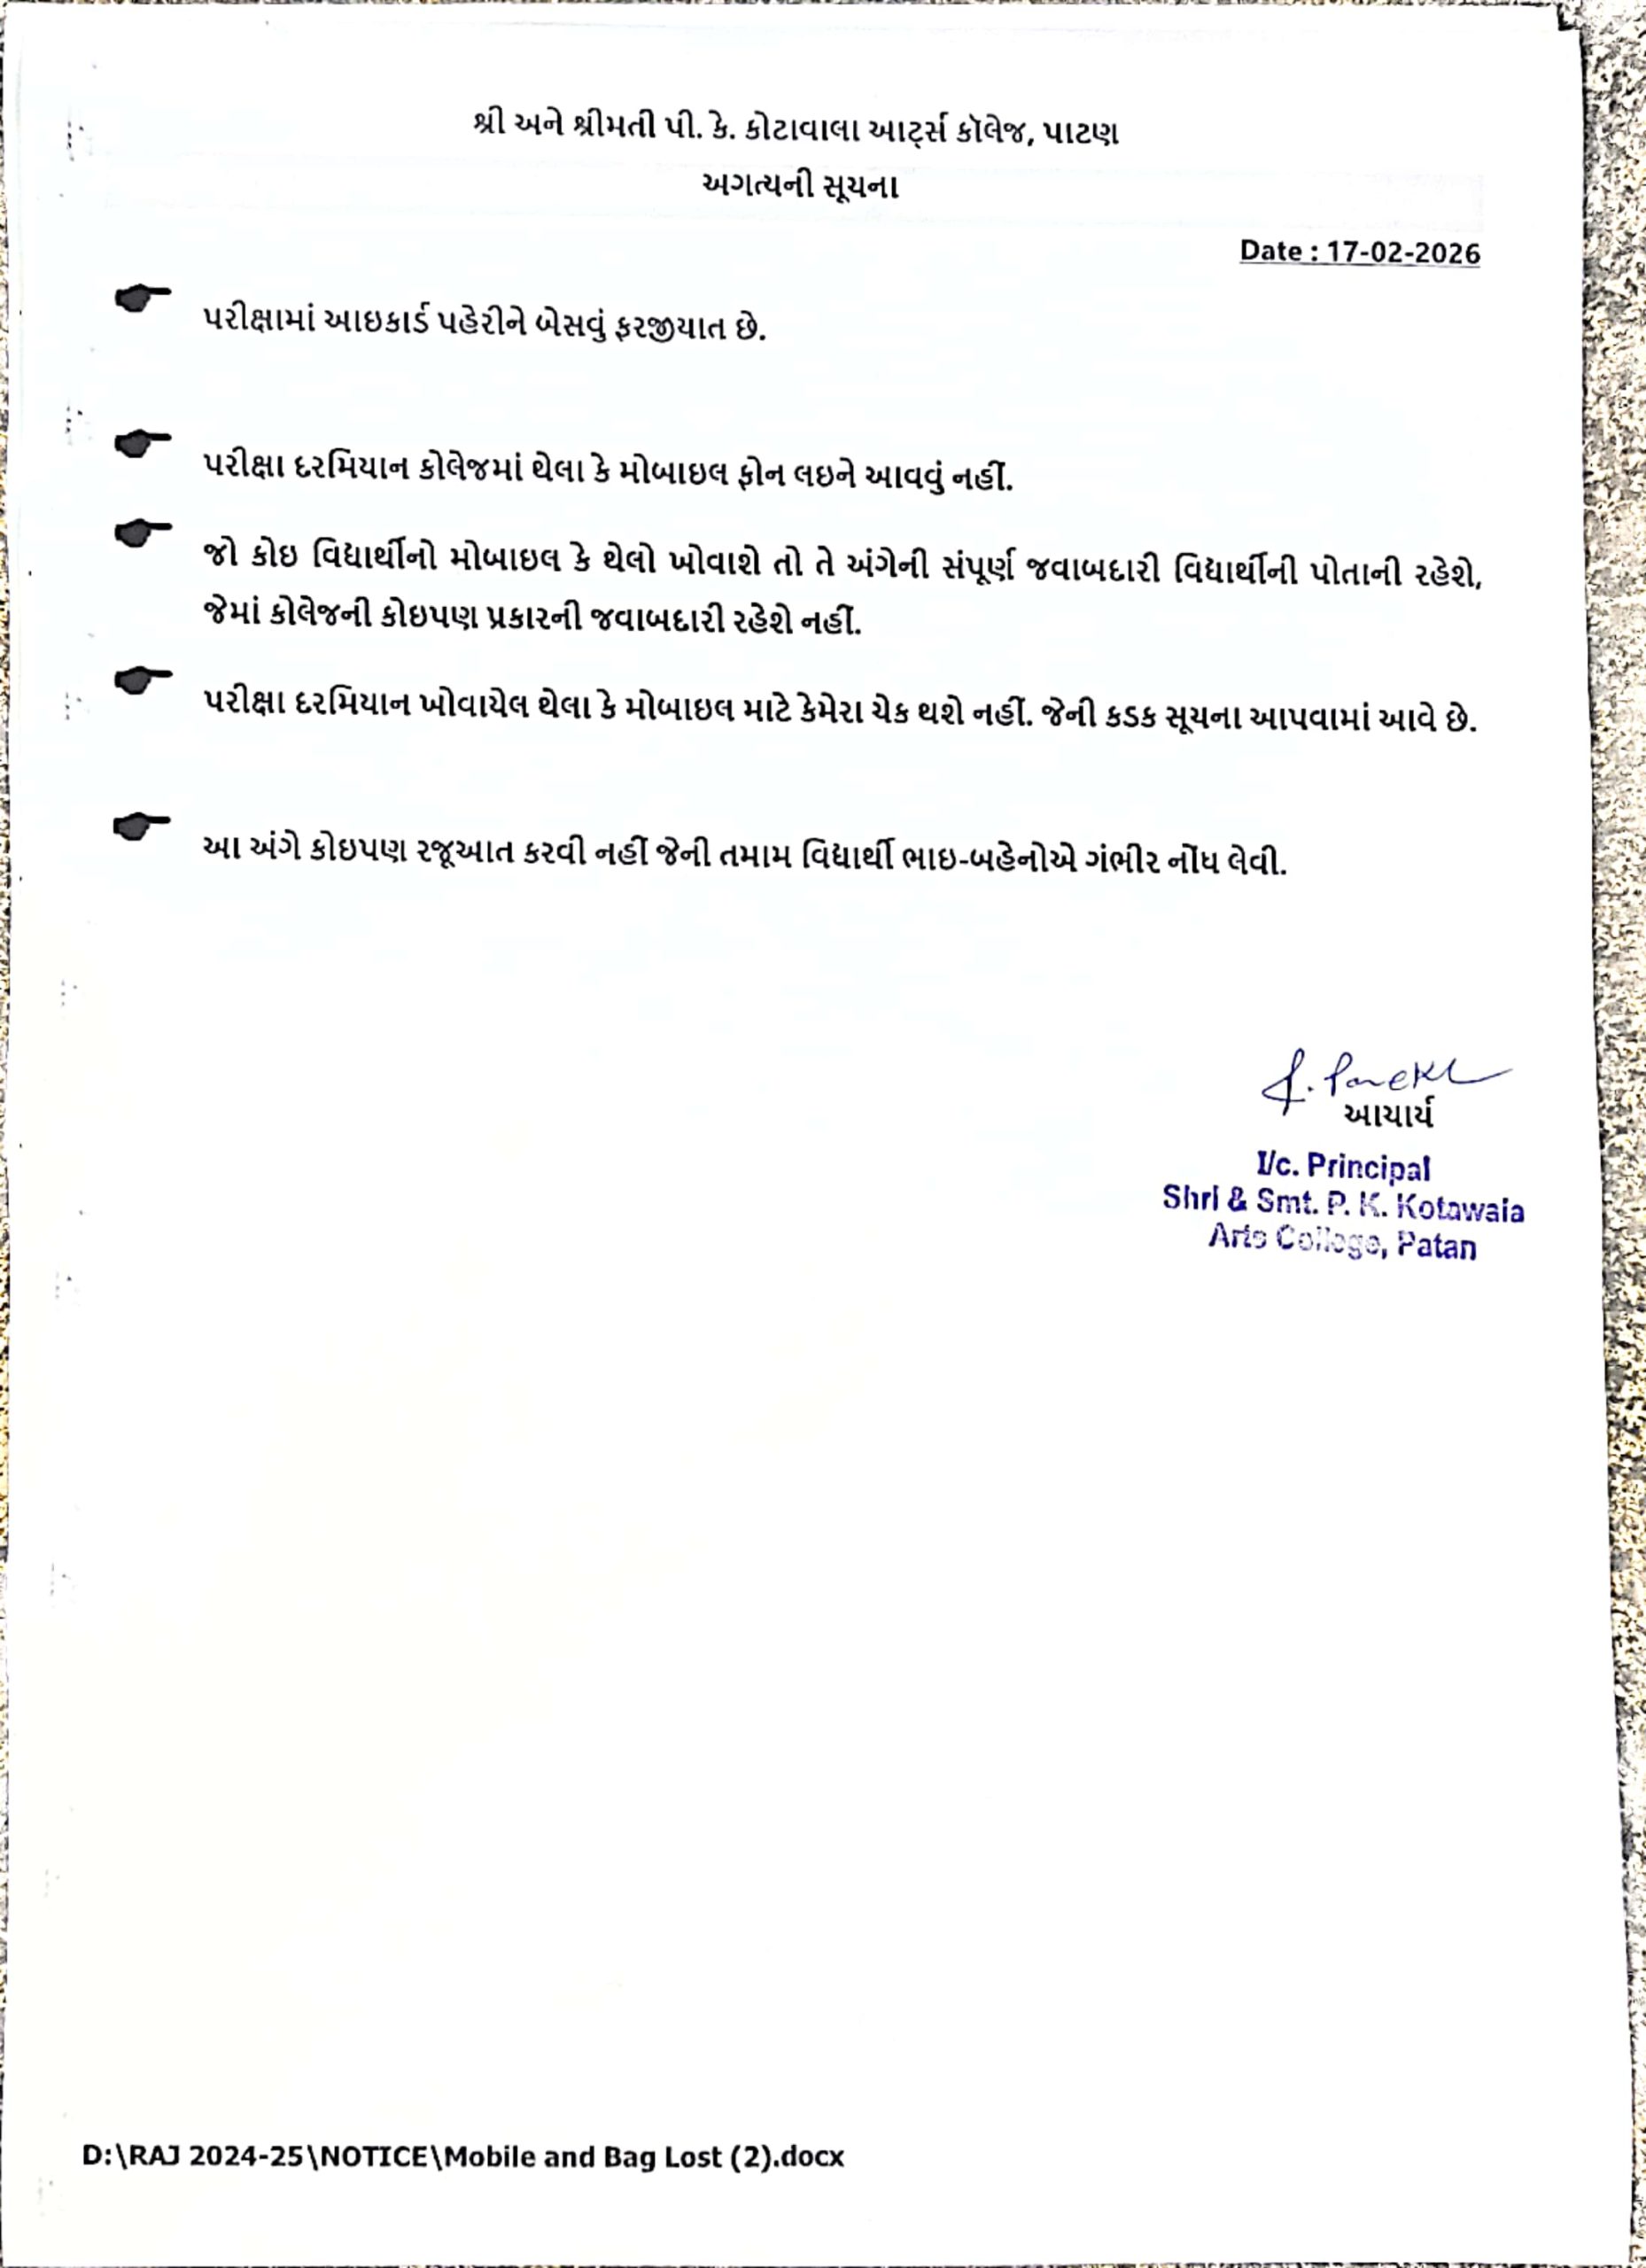 શ્રી અને શ્રીમતી પી. કે. કોટાવાલા આર્ટ્સ કૉલેજ, પાટણ
અગત્યની સૂચના
Date : 17-02-2026
પરીક્ષામાં આઇકાર્ડ પહેરીને બેસવું ફરજીયાત છે.
પરીક્ષા દરમિયાન કોલેજમાં થેલા કે મોબાઇલ ફોન લઇને આવવું નહીં.
જો કોઇ વિદ્યાર્થીનો મોબાઇલ કે થેલો ખોવાશે તો તે અંગેની સંપૂર્ણ જવાબદારી વિદ્યાર્થીની પોતાની રહેશે,
જેમાં કોલેજની કોઇપણ પ્રકારની જવાબદારી રહેશે નહીં.
પરીક્ષા દરમિયાન ખોવાયેલ થેલા કે મોબાઇલ માટે કેમેરા ચેક થશે નહીં. જેની કડક સૂચના આપવામાં આવે છે.
આ અંગે કોઇપણ રજૂઆત કરવી નહીં જેની તમામ વિદ્યાર્થી ભાઇ-બહેનોએ ગંભીર નોંધ લેવી.
આચાર્ય
I/c. Principal
Shri & Smt. P. K. Kotawala
Arts College, Patan
D:\RAJ 2024-25\NOTICE\Mobile and Bag Lost (2).docx